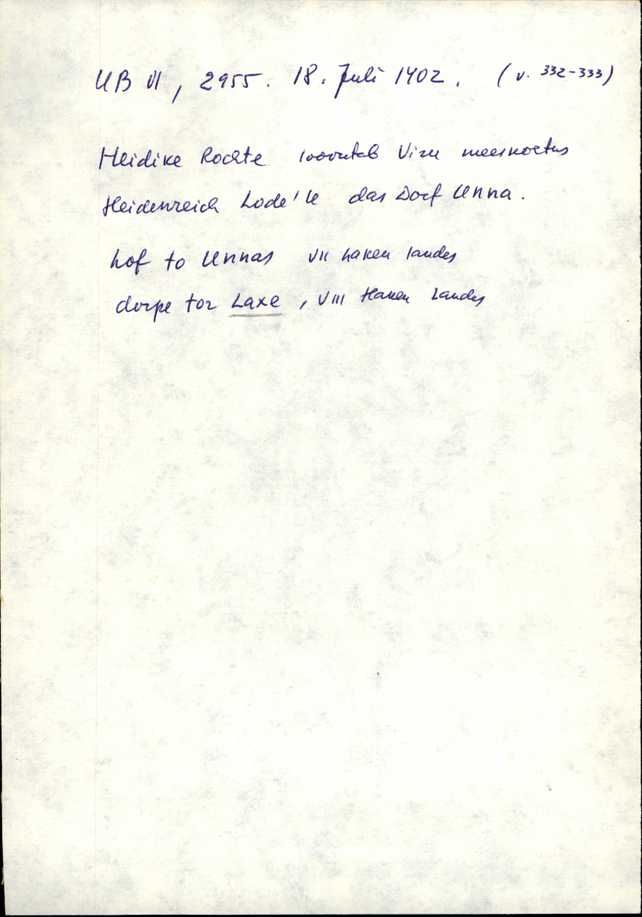 UB VI, 2955. 18. Juli 1402. (v. 332-333)
Heidike Rochte loovutab Viru meeskohtus
Heidenreich Lode'le das Dorf Unna.
hof to Unnas VII haken landes
dorpe tor Laxe, VIII Haken Landes